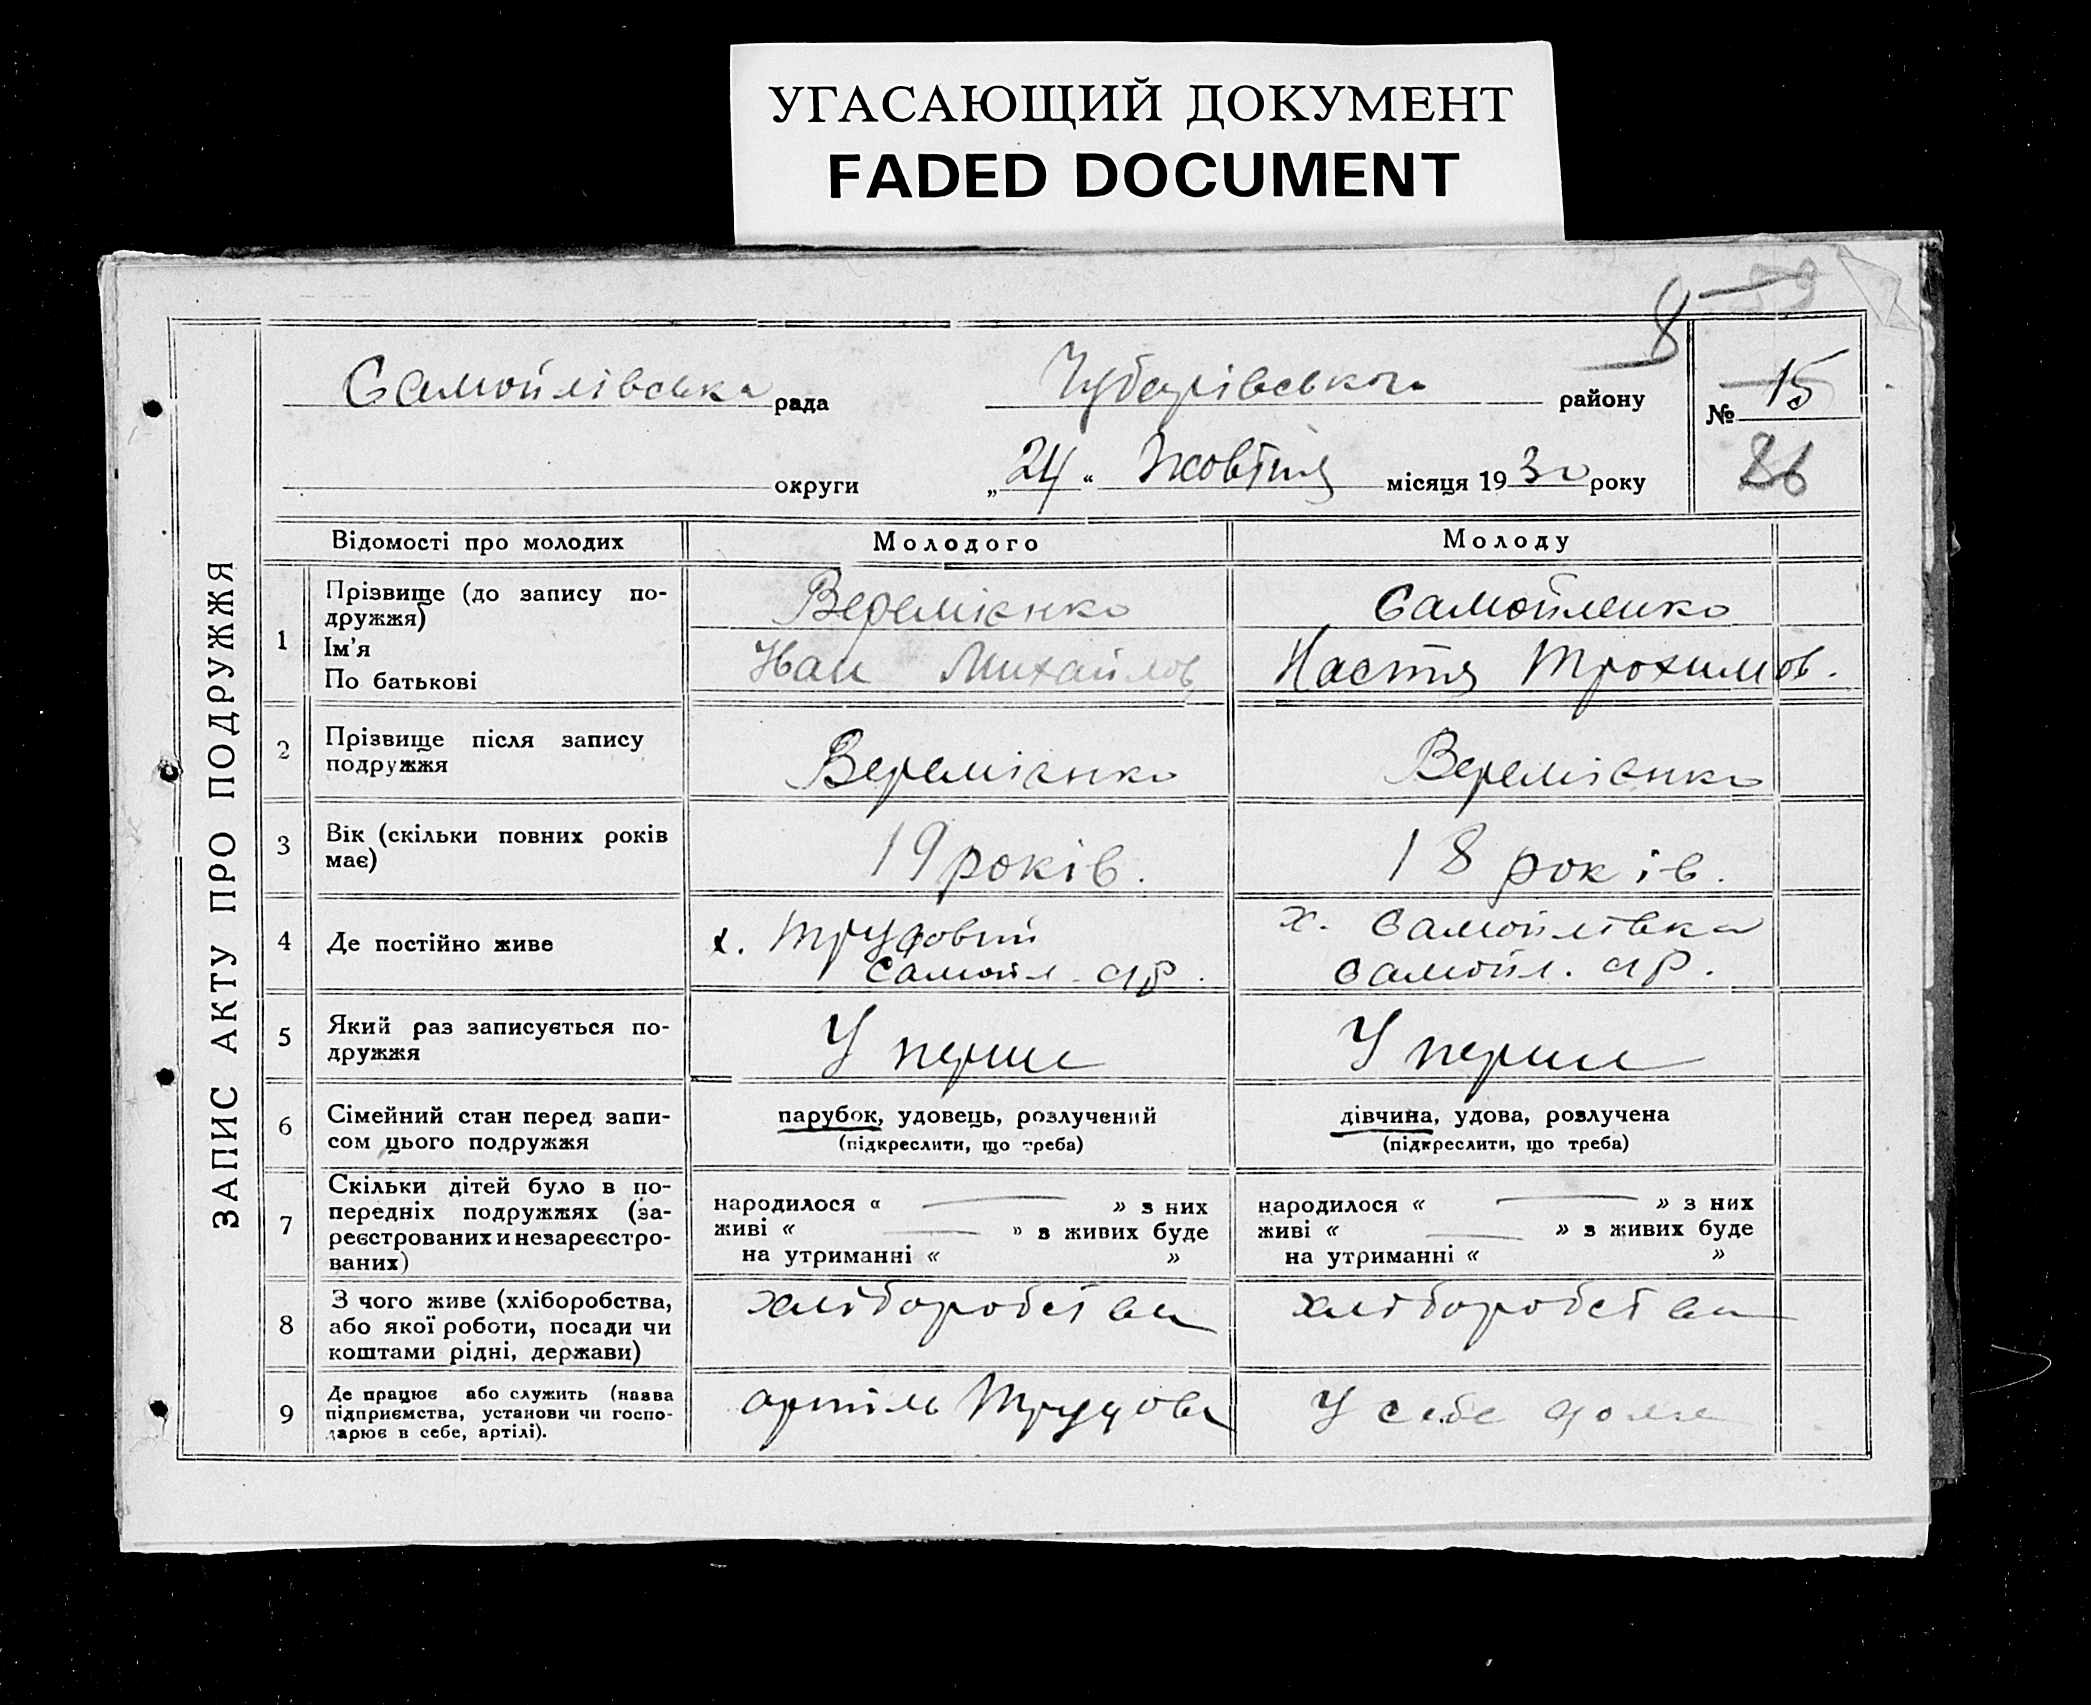 УГАСАЮЩИЙ ДОКУМЕНТ
FADED DOCUMENT
8
59
Самойлівська рада Чубарівського району № 15
округи „24“ Жовтня місяця 1930 року 26
ЗАПИС АКТУ ПРО ПОДРУЖЖЯ
Відомості про молодих Молодого Молоду
1 Прізвище (до запису по-
дружжя) Веремієнко Самойленко
Ім'я
По батькові Іван Михайлов Настя Трохимов.
2 Прізвище після запису
подружжя Веремієнко Веремієнко
3 Вік (скільки повних років
має) 19 років. 18 років.
4 Де постійно живе х. Трудовий х. Самойлівка
Самойл. с/р. Самойл. с/р.
5 Який раз записується по-
дружжя У перше У перше
6 Сімейний стан перед запи-
сом цього подружжя
парубок, удовець, розлучений дівчина, удова, розлучена
(підкреслити, що треба) (підкреслити, що треба)
7 Скільки дітей було в по-
передніх подружжях (за-
реєстрованих и незареєстро-
ваних)
народилося « — » з них народилося « — » з них
живі « — » з живих буде живі « — » з живих буде
на утриманні « » на утриманні « »
8 З чого живе (хліборобства,
або якої роботи, посади чи
коштами рідні, держави)
хліборобства хліборобства
9 Де працює або служить (назва
підприємства, установи чи госпо-
дарює в себе, артілі).
артіль Трудова У себе дома